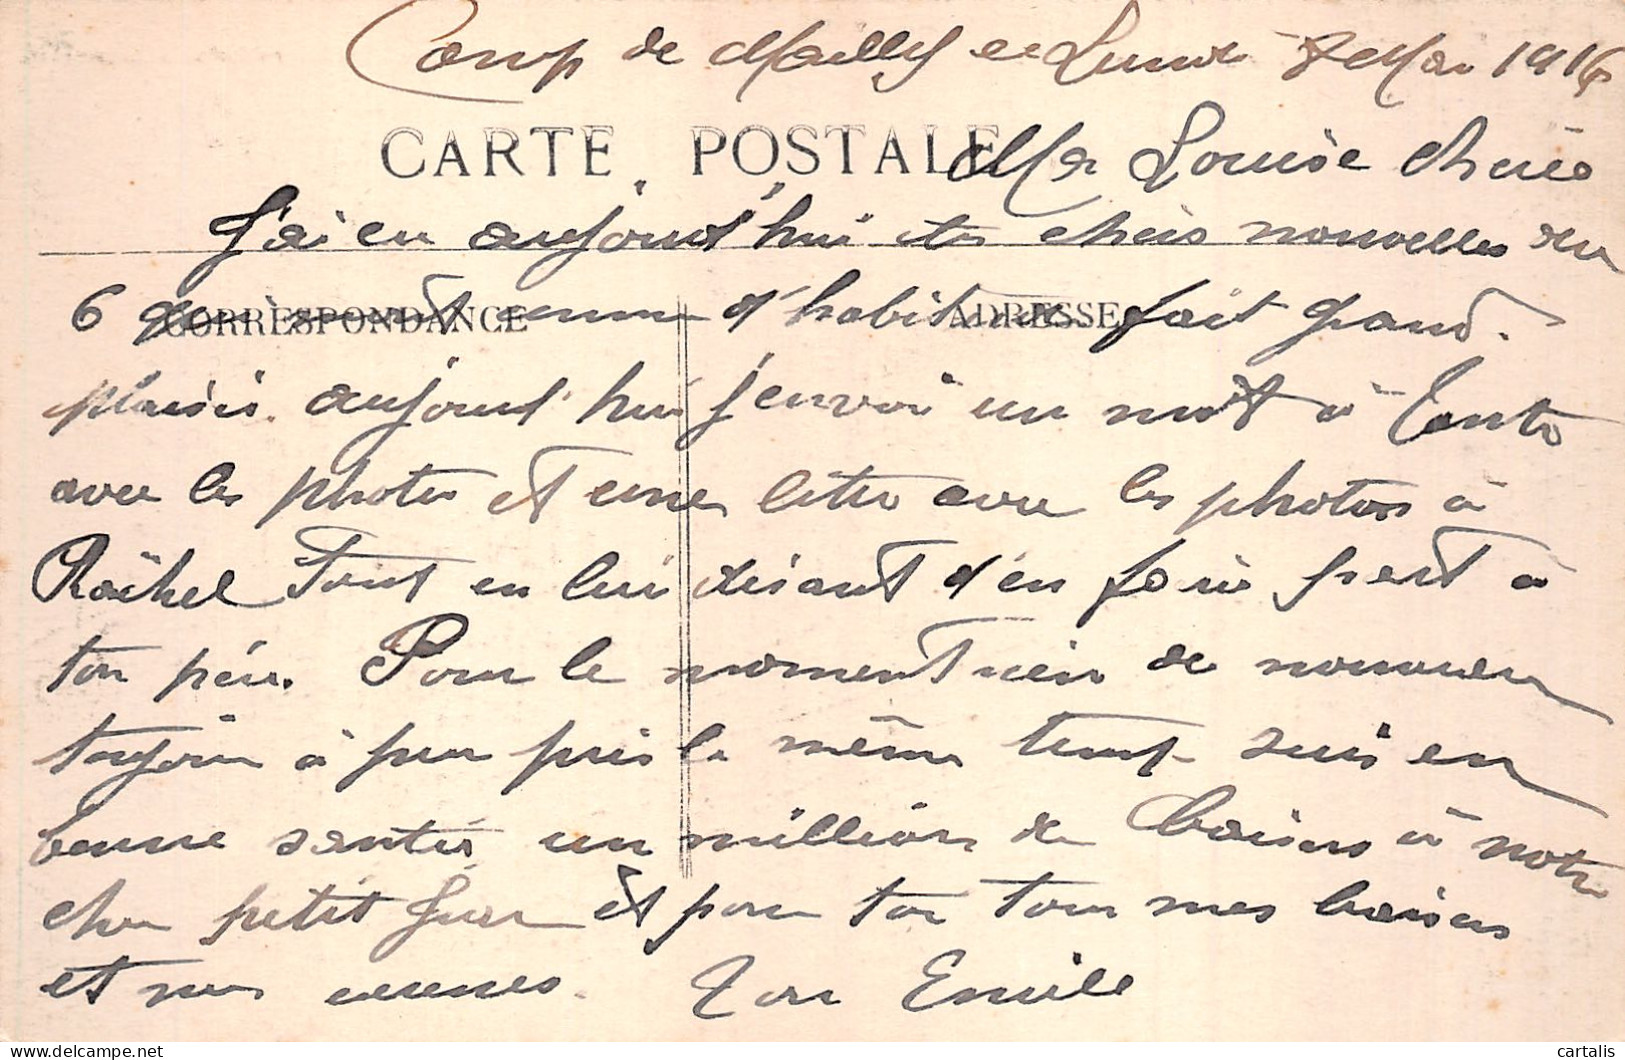 Camp de Mailly le Lundi 8 Mai 1916
CARTE POSTALE
Ma Louise cherie
J'ai eu aujourd'hui tes chers nouvelles du
CORRESPONDANCE
ADRESSE
6 qui mont comme d'habitude fait grand
plaisir. aujourd'hui j'envoi un mot à
avec les photos et une letre avec les photos à
Rachel Tout en lui disant d'en faire part à
ton père. Pour le moment rien de nouveau
toujour à peu près le même temps suis en
bonne santé un million de baisers à notre
cher petit et pour toi tous mes baisers
et mes Ton Emile
cartalis